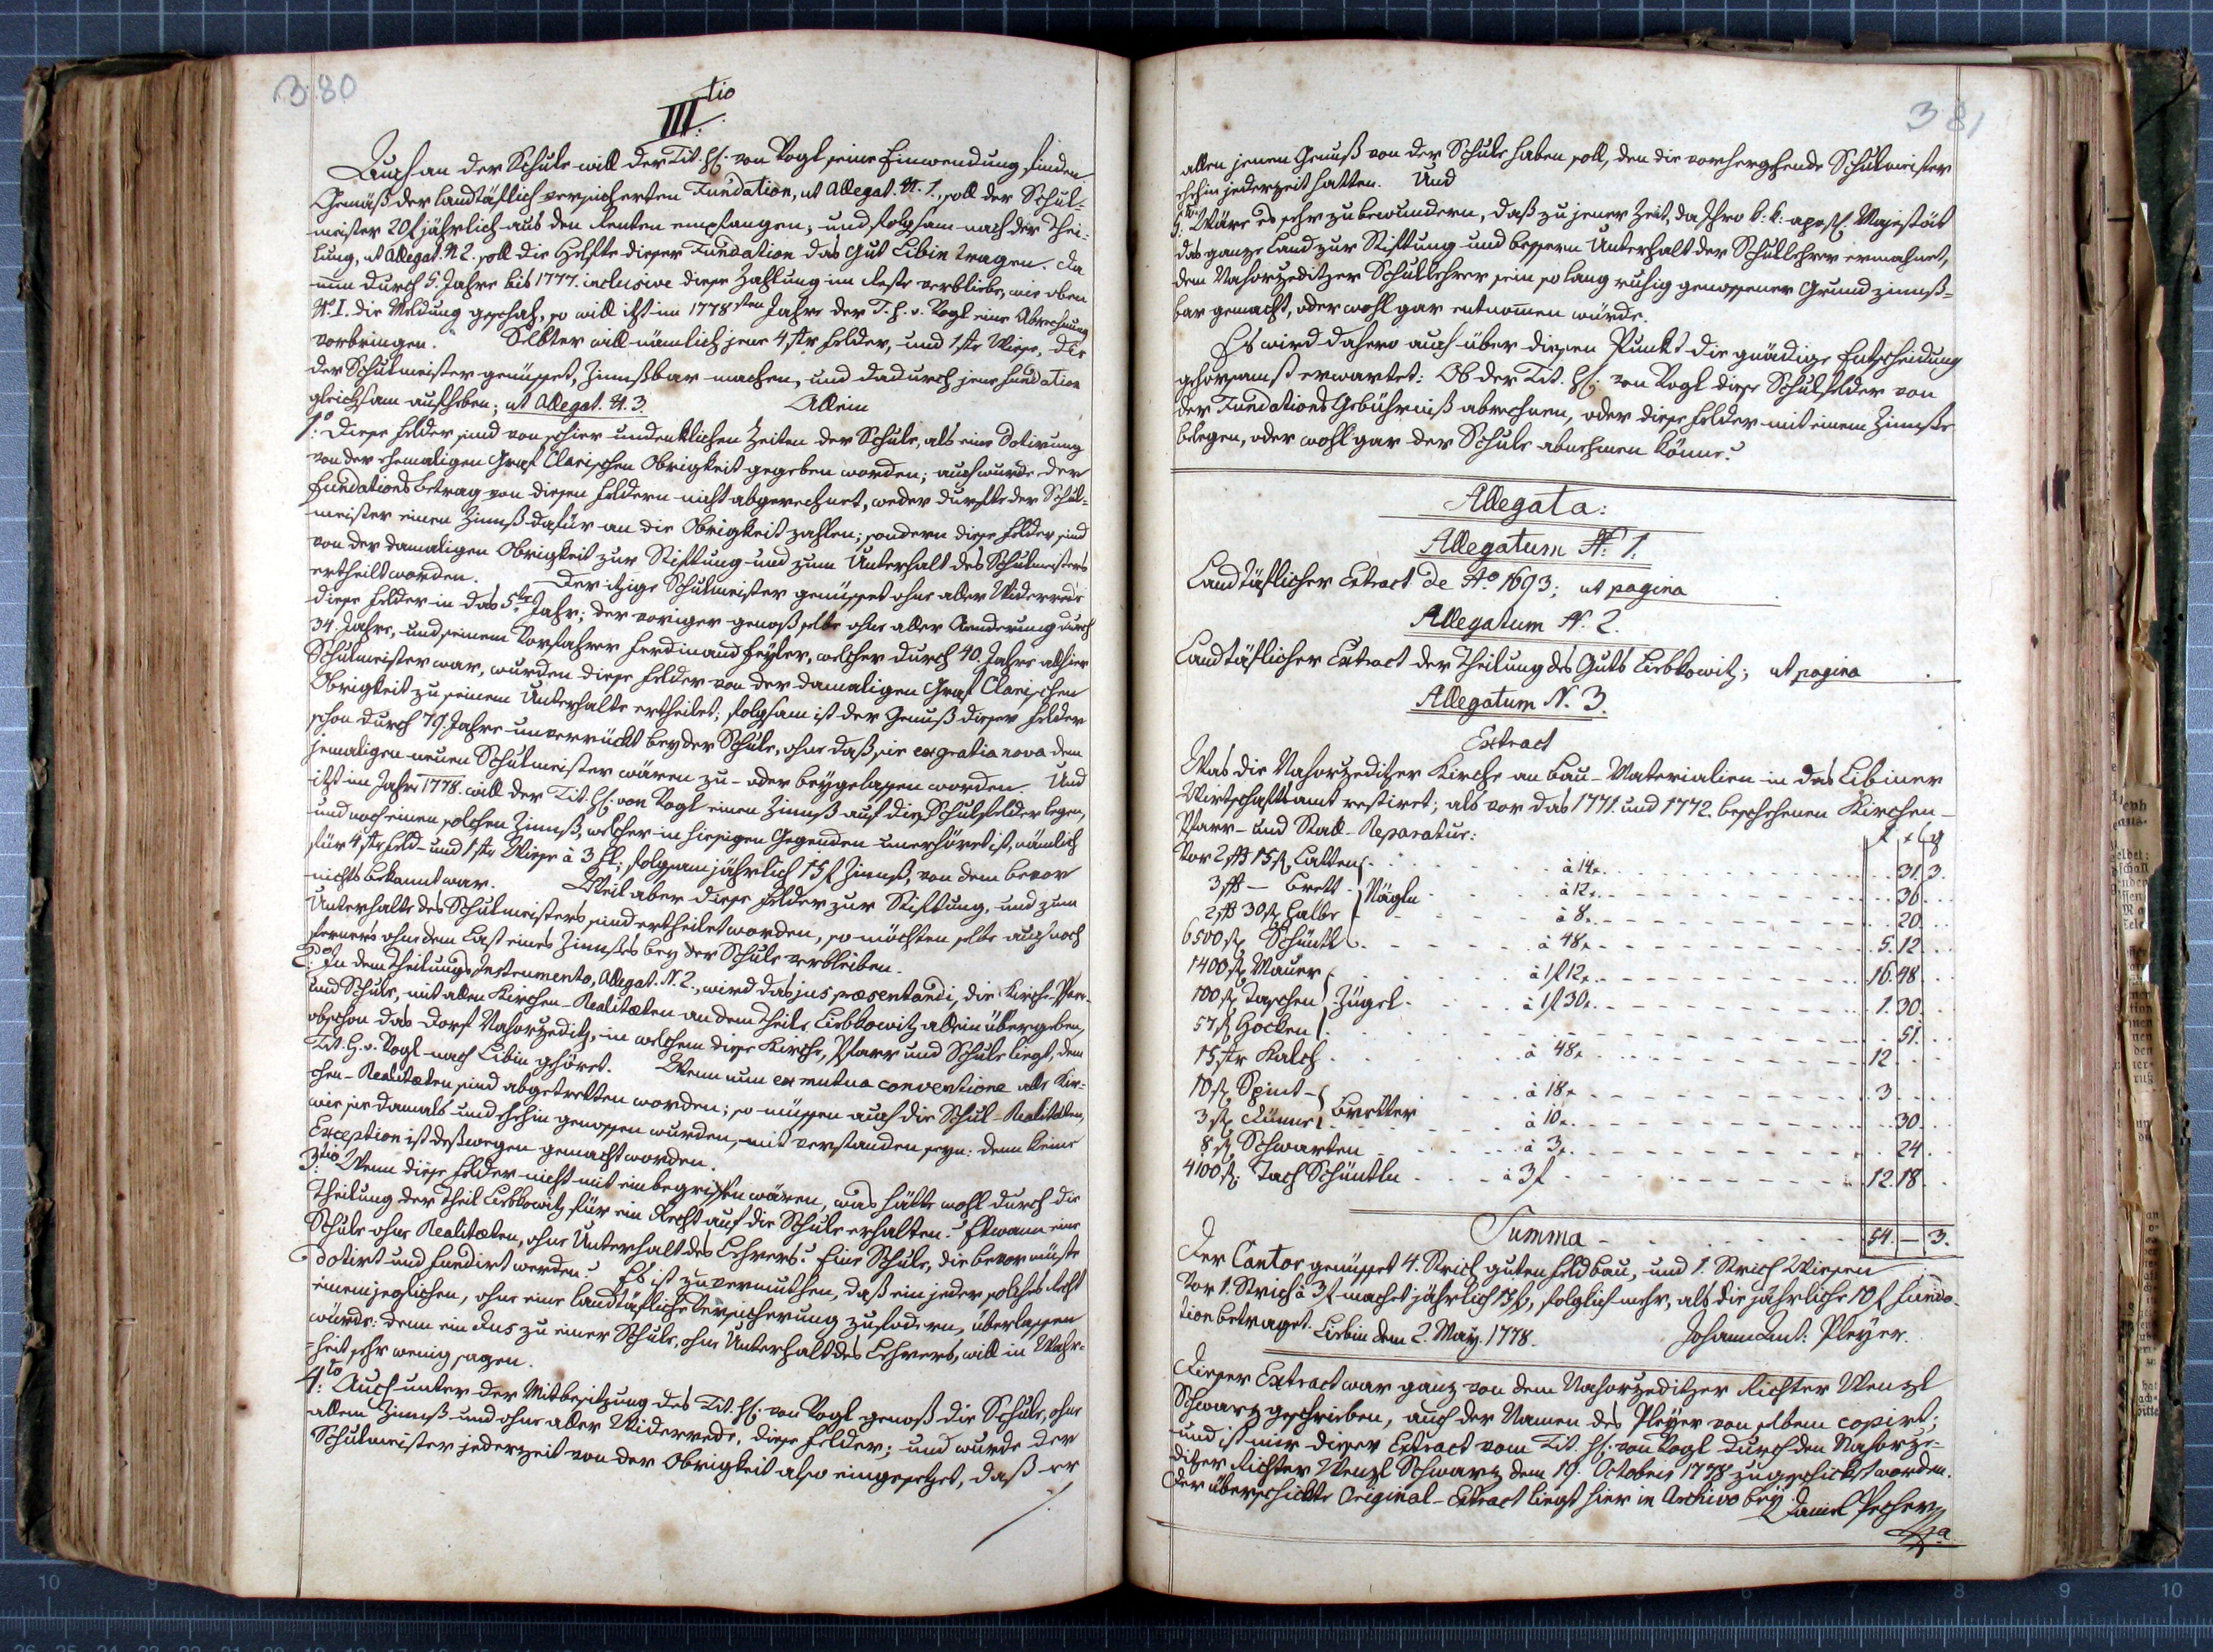 380
III.tio
Auch an der Schule will der Tit. H. von Vogl seine Einwendung finden.
Gemäß der landtäflich versicherten Fundation, ut Allegat. N. 1., soll der Schul-
meister 20 f jährlich aus den Renten empfangen, und folgsam nach der Thei-
lung, ut Allegat. N 2. soll die Helfte dieser Fundation das Gut Libin tragen. Da
nun durch 5. Jahre bis 1777. inclusive diese Zahlung im Reste verbliebe, wie oben
N. I. die Meldung geschah, so will itzt im 1778sten Jahre der T. H. v. Vogl eine Abrechnung
vorbringen. Selbter will nämlich jene 4 str Felder, und 1 str Wiese, die
der Schulmeister genüsset, Zinnßbar machen, und dadurch jene Fundation
gleichsam aufheben; ut Allegat. N. 3. Allein
1o: Diese Felder sind von schier undenklichen Zeiten der Schule, als eine Dotirung
von der ehemaligen Graf Clarischen Obrigkeit gegeben worden; auch wurde der
Fundations betrag von diesen Feldern nicht abgerechnet, weder durfte der Schul-
meister einen Zinnß dafür an die Obrigkeit zahlen; sondern diese Felder sind
von der damaligen Obrigkeit zur Stiftung und zum Unterhalt des Schulmeisters
ertheilt worden. Der itzige Schulmeister genüsset ohne aller Widerrede
diese Felder in das 5te Jahr; der voriger genoß selbe ohne aller Aenderung durch
34. Jahre, und seinem Vorfahrer Ferdinand Feyler, welcher durch 40. Jahre allhier
Schulmeister war, wurden diese Felder von der damaligen Graf Clarischen
Obrigkeit zu seinem Unterhalte ertheilet; folgsam ist der Genuß dieser Felder
schon durch 79 Jahre unverrückt bey der Schule, ohne daß sie ex gratia nova dem
jemaligen neuen Schulmeister wären zu- oder beygelassen worden. Und
itzt im Jahre 1778. will der Tit. H. von Vogl einen Zinnß auf die Schulfelder legen,
und noch einen solchen Zinnß, welcher in hiesigen Gegenden unerhöret ist, nämlich
für 4 str Feld- und 1 str Wiese à 3 fl; folgsam jährlich 15 f Zinnß, von dem bevor
nichts bekannt war. Weil aber diese Felder zur Stiftung, und zum
Unterhalte des Schulmeisters sind ertheilet worden, so möchten selbe auch noch
ferners ohne dem Last eines Zinnßes bey der Schule verbleiben.
2do: In dem Theilungs Instrumento, Allegat. N. 2., wird das jus præsentandi, die Kirche Pfarr-
und Schule, mit allen Kirchen-Realitæten an dem Theile Liebkowitz allein übergeben,
obschon das Dorf Nahorzeditz, in welchem diese Kirche, Pfarr und Schule liegt, dem
Tit. H. v. Vogl nach Libin gehöret. Wenn nun ex mutua conventione alle Kir-
chen-Realitæten sind abgetretten worden; so müssen auch die Schul-Realitæten,
wie sie damals und ehehin genossen wurden, mit verstanden seyn: denn keine
Exception ist deßwegen gemacht worden.
3tio: Wenn diese Felder nicht mit einbegriffen wären, was hätte wohl durch die
Theilung der Theil Liebkowitz für ein Recht auf die Schule erhalten? Etwann eine
Schule ohne Realitæten, ohne Unterhalt des Lehrers? Eine Schule, die bevor müste
dotirt und fundirt werden? Es ist zu vermuthen, daß ein jeder solches Recht
einem jeglichen, ohne eine landtäfliche Versicherung zu fodern, überlassen
würde: denn ein Jus zu einer Schule, ohne Unterhalt des Lehrers, will in Wahr-
=heit sehr wenig sagen.
4to: Auch unter der Mitbesitzung des Tit. H. von Vogl genoß die Schule, ohne
allem Zinnß und ohne aller Widerrede, diese Felder; und wurde der
Schulmeister jederzeit von der Obrigkeit also eingesetzet, daß er
381
allen jenen Genuß von der Schule haben soll, den die vorhergehende Schulmeister
ehehin jederzeit hatten. Und
5to: Wäre es sehr zu bewundern, daß zu jener Zeit, da Ihro k: k: apost. Majestät
das ganze Land zur Stiftung und bessern Unterhalt der Schullehrer ermahnet,
dem Nahorzeditzer Schullehrer sein so lang ruhig genossener Grund zinnß-
bar gemacht, oder wohl gar entnomen würde.
Es wird dahero auch über diesen Punkt die gnädige Entscheidung
gehorsamst erwartet: Ob der Tit. H. von Vogl diese Schulfelder von
der Fundations Gebührniß abrechnen, oder diese Felder mit einem Zinnße
belegen, oder wohl gar der Schule abnehmen könne?
Allegata:
Allegatum N. 1.
Landtäflicher Extract de Ao 1693; ut pagina
Allegatum N. 2.
Landtäflicher Extract der Theilung des Guts Liebkowitz; ut pagina
Allegatum N. 3.
Extract
Was die Nahorzeditzer Kirche an Bau-Materialien in das Libiner
Wirtschaftsamt restiret; als vor das 1771. und 1772. beschehenen Kirchen-
Pfarr- und Stall-Reparatur:
Vor 2 ß 15 st Latten à 14x 31. 3.
3 ß — Brett Nägln à 12x 36
2 ß 30 st halbe à 8x 20
6500 st Schüntl à 48x 5. 12
1400 st Mauer à 1 f 12x 16. 48
100 st Taschen Zügel à 1 f 30x 1. 30
57 st Hocken 51.
15 str Kalch à 48x 12
10 st Spint- à 18x 3
3 st Rünne Bretter à 10x 30
8 st Schwarten à 3x 24
4100 st. Tach Schüntln à 3 f 12. 18
Summa 54. — 3.
Der Cantor genüsset 4. Strich guten Feld bau, und 1. Strich Wiesen
vor 1. Strich à 3 f machet jährlich 15 f, folglich mehr, als die jährliche 10 f Funda-
tion betraget. Liebin dem 2. May. 1778. Johann Ant: Pleyer.
Dieser Extract war ganz von dem Nahorzeditzer Richter Wenzl
Schwarz geschrieben, auch der Namen des Pleyer von selbem copirt;
und ist mir dieser Extract vom Tit. H. von Vogl durch den Nahorze-
ditzer Richter Wenzl Schwarz dem 19. Octobris 1778 zugeschickt worden.
Der überschickte Original-Extract liegt hier in Archivo bey. Daniel Pecher